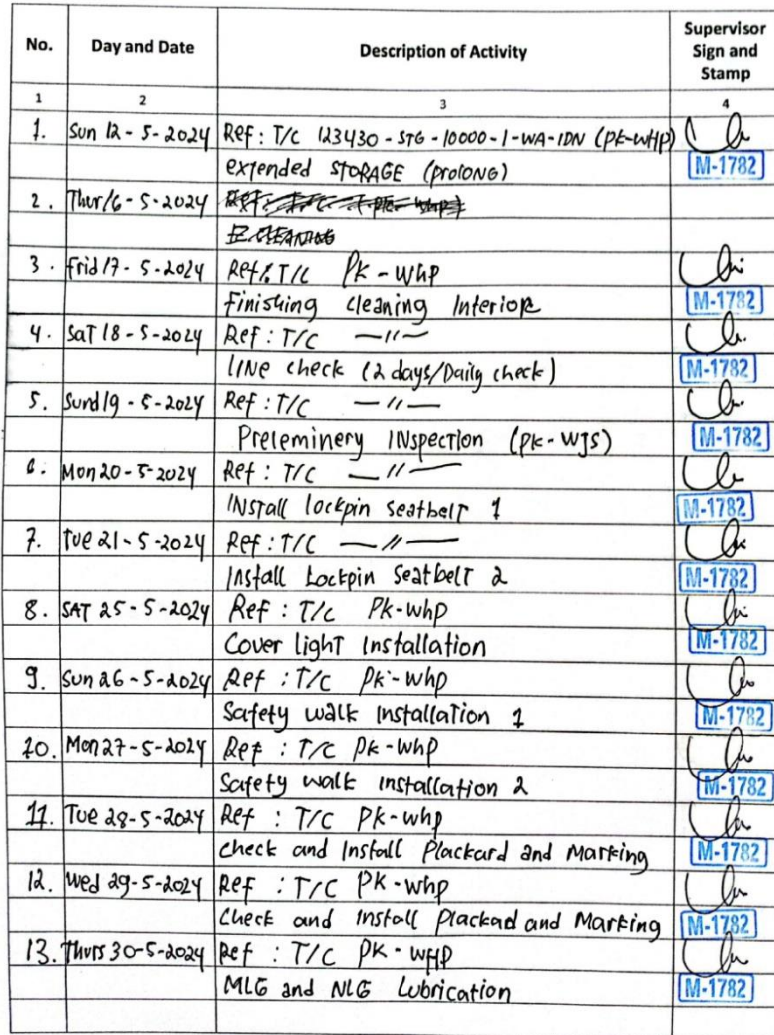 No. Day and Date Description of Activity Supervisor Sign and Stamp
1 2 3 4
1. Sun 12-5-2024 Ref : T/C 123430-STG-10000-1-WA-IDN (PK-WHP)
extended STORAGE (prolONG) M-1782
2. Thur 16-5-2024
3. Frid 17-5-2024 Ref : T/C PK-WHP
Finishing cleaning Interior M-1782
4. SaT 18-5-2024 Ref : T/C —//—
LINe check (2 days/Daily check) M-1782
5. Sund 19-5-2024 Ref : T/C —//—
Preleminery INspecTion (PK-WJS) M-1782
6. Mon 20-5-2024 Ref : T/C —//—
INsTall lockpin seatbelT 1 M-1782
7. Tue 21-5-2024 Ref : T/C —//—
Install Lockpin SeatbelT 2 M-1782
8. SAT 25-5-2024 Ref : T/C PK-WHP
Cover lighT Installation M-1782
9. Sun 26-5-2024 Ref : T/C PK-WHP
Safety walk Installation 1 M-1782
10. Mon 27-5-2024 Ref : T/C PK-WHP
Safety walk installation 2 M-1782
11. Tue 28-5-2024 Ref : T/C PK-WHP
Check and Install Plackard and Marking M-1782
12. Wed 29-5-2024 Ref : T/C PK-WHP
Check and Install Plackad and Marking M-1782
13. Thurs 30-5-2024 Ref : T/C PK-WHP
MLG and NLG Lubrication M-1782